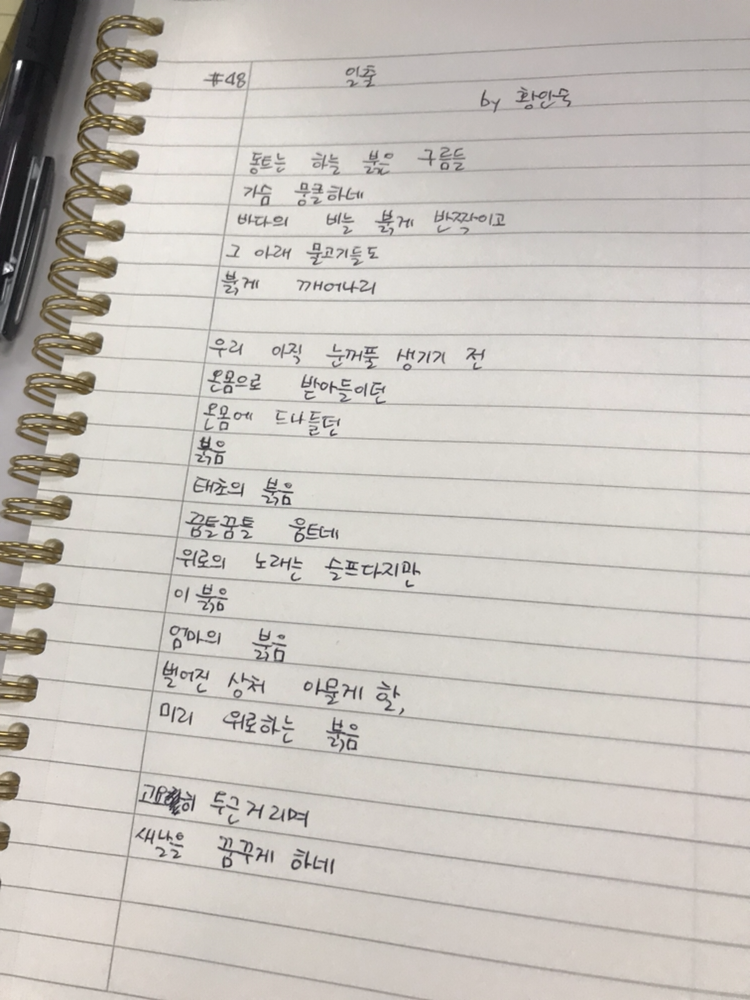 #48 일출
by 황인숙
동트는 하늘 붉은 구름들
가슴 뭉클하네
바다의 비늘 붉게 반짝이고
그 아래 물고기들도
붉게 깨어나리
우리 아직 눈꺼풀 생기기 전
온몸으로 받아들이던
온몸에 드나들던
붉음
태초의 붉음
꿈틀꿈틀 움트네
위로의 노래는 슬프다지만
이 붉음
엄마의 붉음
벌어진 상처 아물게 할,
미리 위로하는 붉음
두근거리며
새날을 꿈꾸게 하네